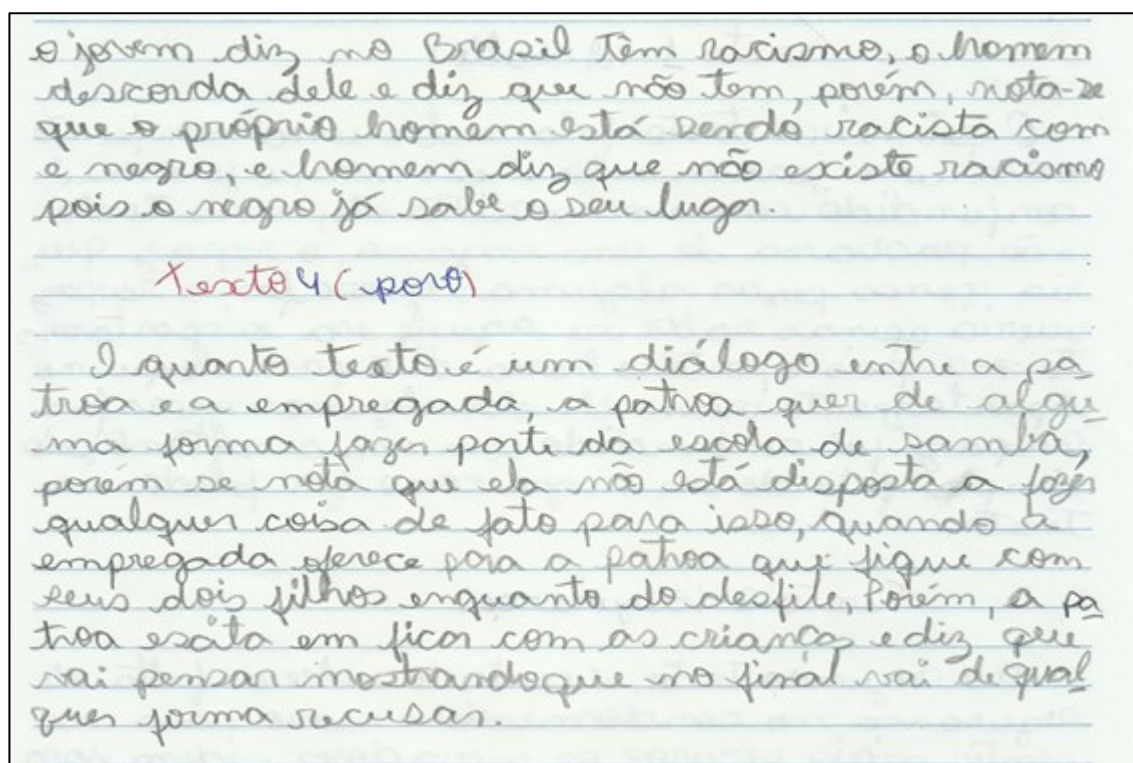 o jovem diz no Brasil têm racismo, o homem
descorda dele e diz que não tem, porém, nota-se
que o próprio homem está sendo racista com
e negro, e homem diz que não existe racismo
pois o negro já sabe o seu lugar.
Texto 4 (povo)
O quanto texto é um diálogo entre a pa
troa e a empregada, a patroa quer de algu
ma forma fazer parte da escola de samba,
porém se nota que ela não está disposta a fazer
qualquer coisa de fato para isso, quando a
empregada oferece para a patroa que fique com
seus dois filhos enquanto do desfile, Porém, a pa
troa esita em ficar com as crianças e diz que
vai pensar mostrando que no final vai de qual
quer forma recusar.